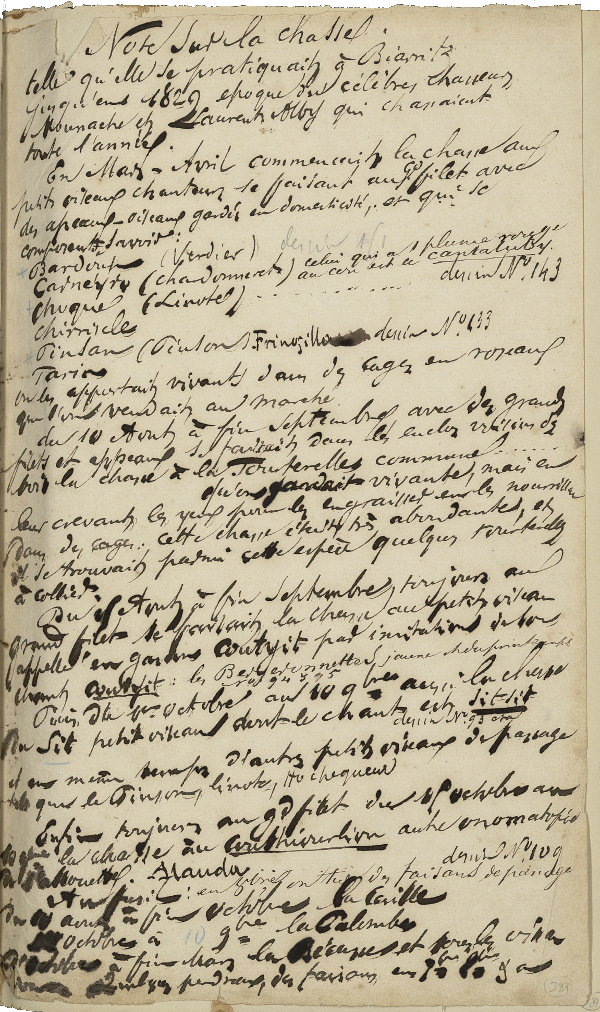 Note sur la chasse.
telle qu'elle se pratiquait à Biarritz
jusqu'en 1829 epoque des célèbres chasseurs
Mounache et Laurent Alby qui chassaient
toute l'année.
En Mars - Avril commençait la chasse aux
petits oiseaux chanteurs se faisant au gd filet avec
des apeaux - oiseaux gardés en domesticité, et qui se
composent savoir :
Bardouin (Verdier) dessin
(chardonneret) celui qui a 1 plume rouge
au est un cantaluby.
dessin No. 143
Chouquet (Linotte)
Chirriscle
Pinsan (Pinson) Fringilla dessin No. 133
Tarin
on les apportait vivants dans des cages en roseaux
que l'on vendait au marché.
du 10 Aout à fin Septembre avec des grands
filets et appeaux se faisait dans les enclos voisins des
bois la chasse à la Tourterelle commune
qu'on gardait vivante, mais en
leur crevant les yeux pour les engraisser en les nourrissant
dans des cages. cette chasse était très abondante, et
il se trouvait parmi cette espèce quelques tourterelles
à collier.
Du 15 Aout à fin Septembre, toujours au
grand filet se faisait la chasse au petit oiseau
appellé en gascon coutyit par imitation de son
chant coutyit : les Bergeronnettes, jaune
nos 94 & 95
Puis, du 1er octobre au 10 9bre aussi la chasse
du Sit petit oiseau dont le chant est sit-sit
dessin No. 93
et en même temps d'autres petits oiseaux de passage
tels que le Pinson, linotte, Hochequeue
Enfin toujours au gd filet du 15 octobre au
la chasse au autre onomatopée
de l'allouette. Alauda dessin No. 109
Au fusil : en Avril on tirait des faisans de passage
Du 10 aout à fin octobre la Caille
octobre à 10 9bre la Palombe
octobre à fin Mars la Bécasse et tous les oiseaux
quelques perdreaux, des faisans en